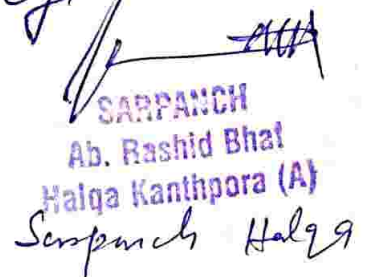 SARPANCH
Ab. Rashid Bhat
Halqa Kanthpora (A)
Sarpanch Halqa